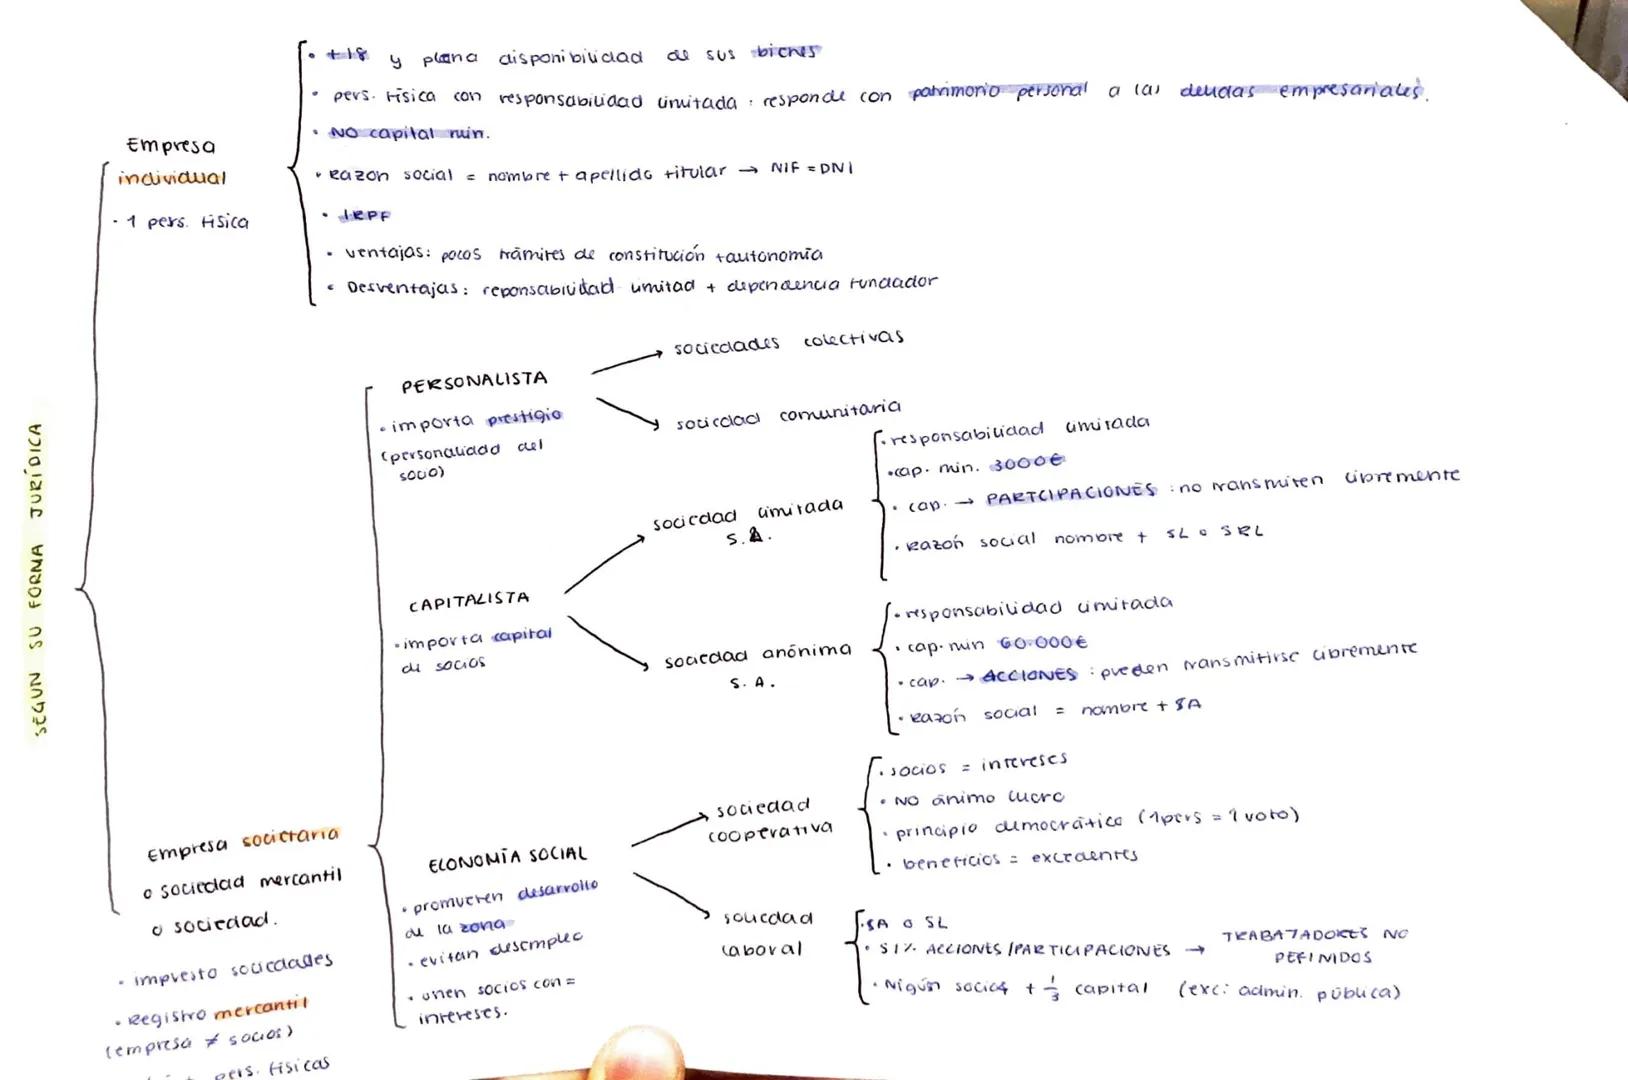 SEGUN SU FORMA JURÍDICA
Empresa
individual
· 1 pers. física
· +18 y plena disponibilidad de sus bienes
· pers. física con responsabilidad limitada : responde con patrimonio personal a las deudas empresariales.
· NO capital min.
· Razon social = nombre + apellido titular → NIF = DNI
· IRPF
· ventajas: pocos trámites de constitución + autonomía
· Desventajas: reponsabilidad limitad + dependencia fundador
Empresa societaria
o sociedad mercantil
o sociedad.
· impuesto sociedades
· Registro mercantil
(empresa ≠ socios)
pers. físicas
PERSONALISTA
· importa prestigio
(personalidad del
socio)
→ sociedades colectivas
→ sociedad comunitaria
CAPITALISTA
· importa capital
de socios
→ sociedad limitada
· responsabilidad limitada
· cap. min. 3000€
· cap. → PARTCIPACIONES : no transmiten libremente
· Razón social nombre + SL o SRL
→ sociedad anónima
S. A.
· responsabilidad limitada
· cap. min 60.000€
· cap. → ACCIONES : pueden transmitirse libremente
· Razón social = nombre + SA
ECONOMÍA SOCIAL
· promueven desarrollo
de la zona
· evitan desempleo
· unen socios con =
intereses.
→ sociedad
cooperativa
· socios = intereses
· NO ánimo lucro
· principio democrático (1pers = 1 voto)
· beneficios = excedentes
→ sociedad
laboral
· SA o SL
· 51% ACCIONES / PARTICIPACIONES → TRABAJADORES NO
DEFINIDOS
· Nigún socio + 1/3 capital (exc: admin. pública)